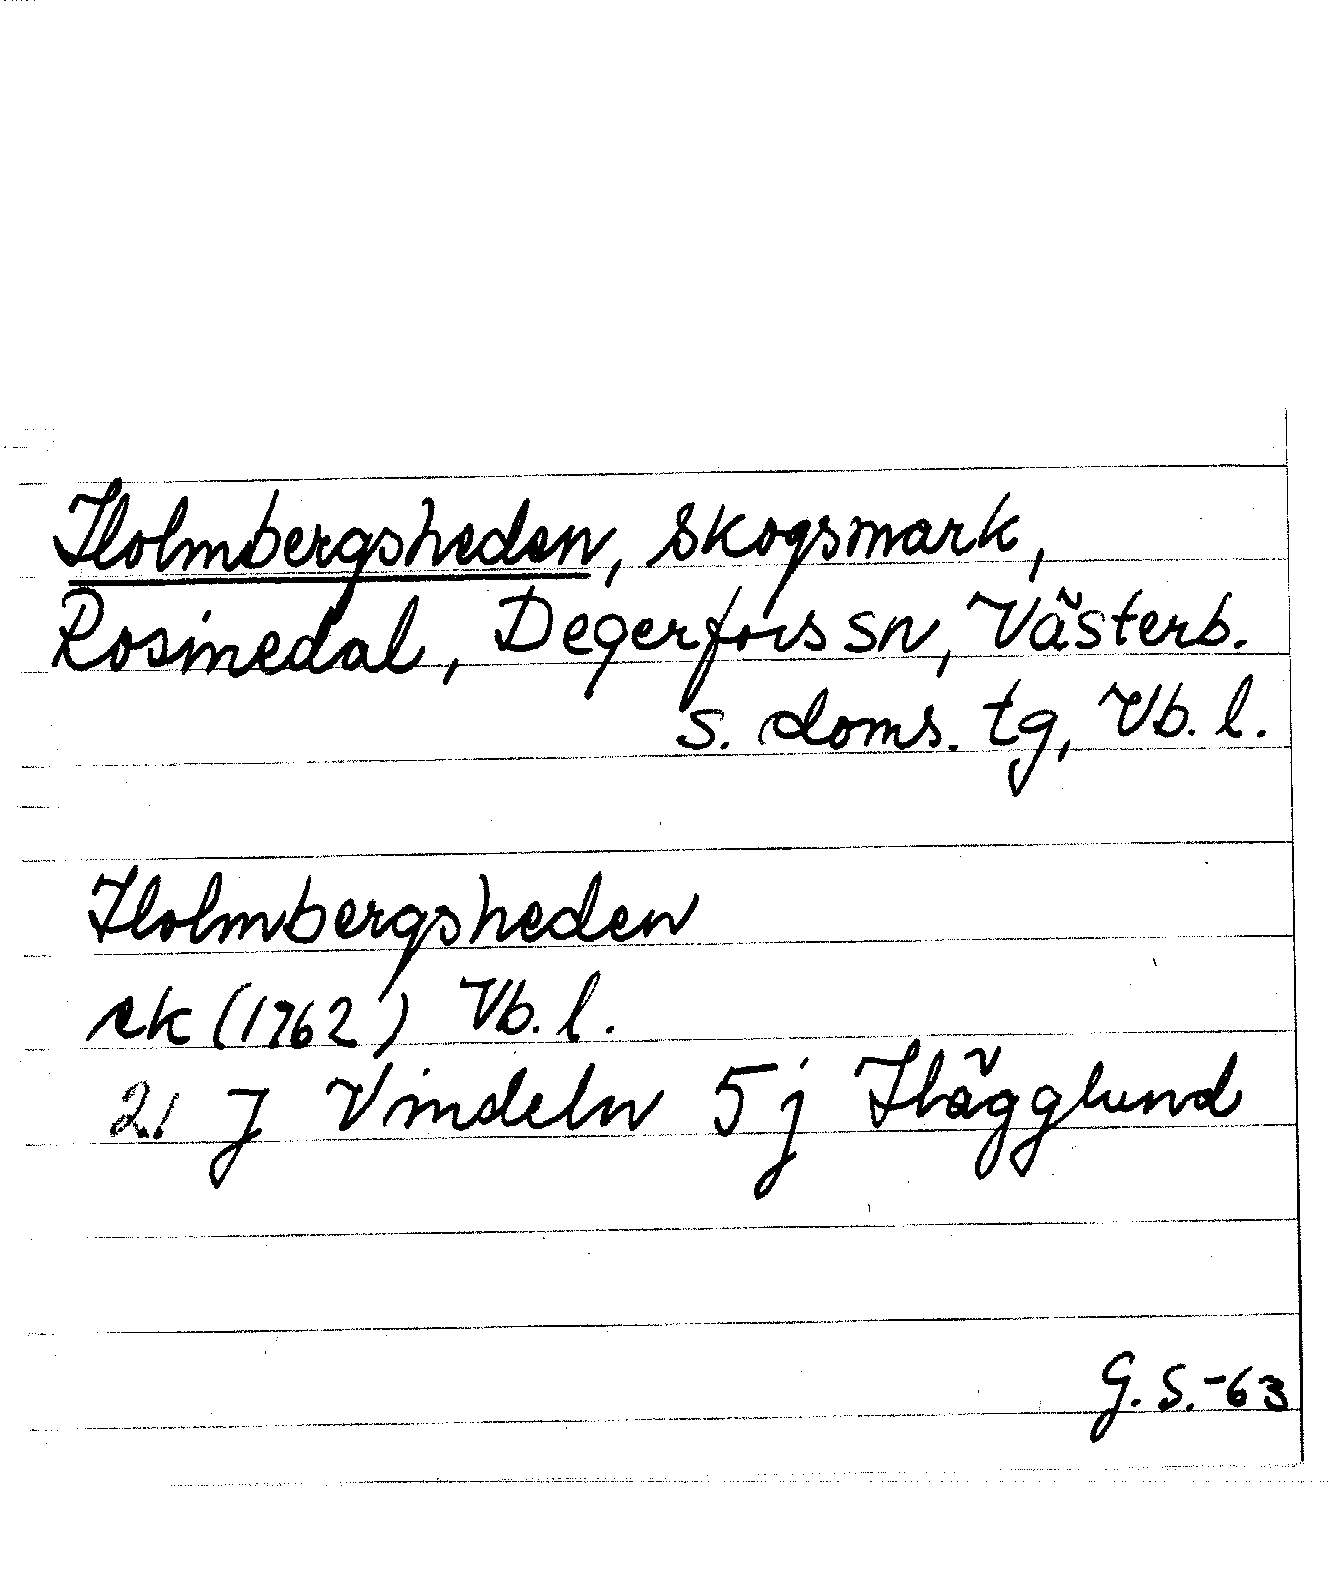 Holmbergsheden, skogsmark,
Rosinedal, Degerfors sn, Västerb.
s. doms. tg, Vb. l.
Holmbergsheden
ek (1762) Vb. l.
21 J Vindeln 5 j Hägglund
G. S. -63